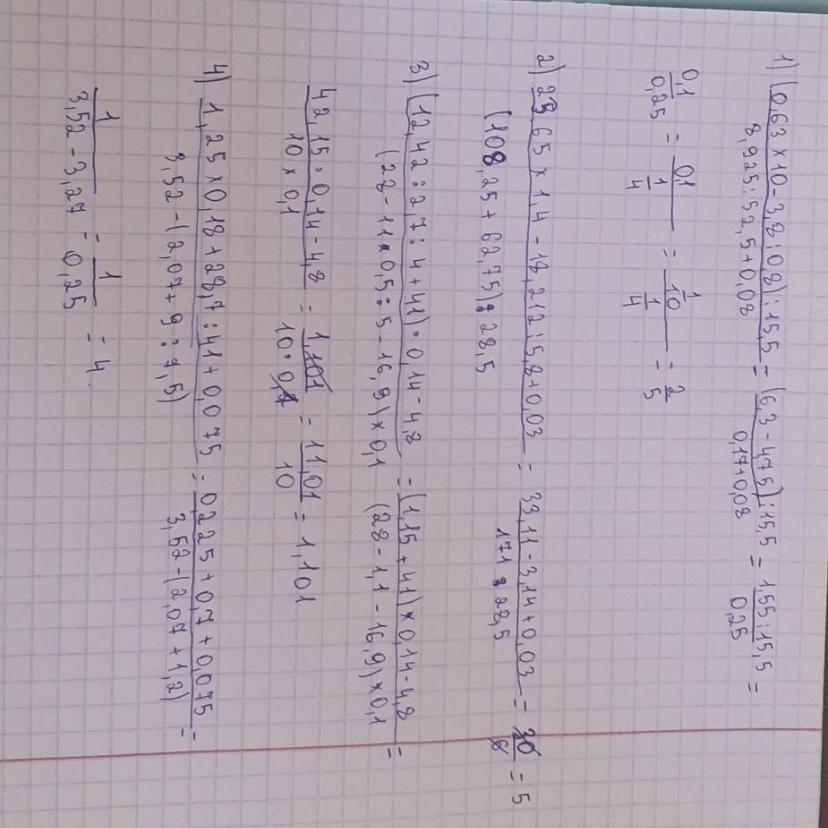 1) (0,63 × 10 - 3,8 : 0,8) : 15,5 / 8,925 : 52,5 + 0,08 = (6,3 - 4,75) : 15,5 / 0,17 + 0,08 = 1,55 : 15,5 / 0,25 =
0,1 / 0,25 = 0,1 / 1/4 = 1/10 / 1/4 = 2/5
2) 23,65 × 1,4 - 18,212 : 5,8 + 0,03 / (108,25 + 62,75) : 28,5 = 33,11 - 3,14 + 0,03 / 171 : 28,5 = 30/6 = 5
3) (12,42 : 2,7 : 4 + 41) · 0,14 - 4,8 / (28 - 11 × 0,5 : 5 - 16,9) × 0,1 = (1,15 + 41) × 0,14 - 4,8 / (28 - 1,1 - 16,9) × 0,1 =
42,15 · 0,14 - 4,8 / 10 × 0,1 = 1,101 / 10 · 0,1 = 11,01 / 10 = 1,101
4) 1,25 × 0,18 + 28,7 : 41 + 0,075 / 3,52 - (2,07 + 9 : 7,5) = 0,225 + 0,7 + 0,075 / 3,52 - (2,07 + 1,2) =
1 / 3,52 - 3,27 = 1 / 0,25 = 4.